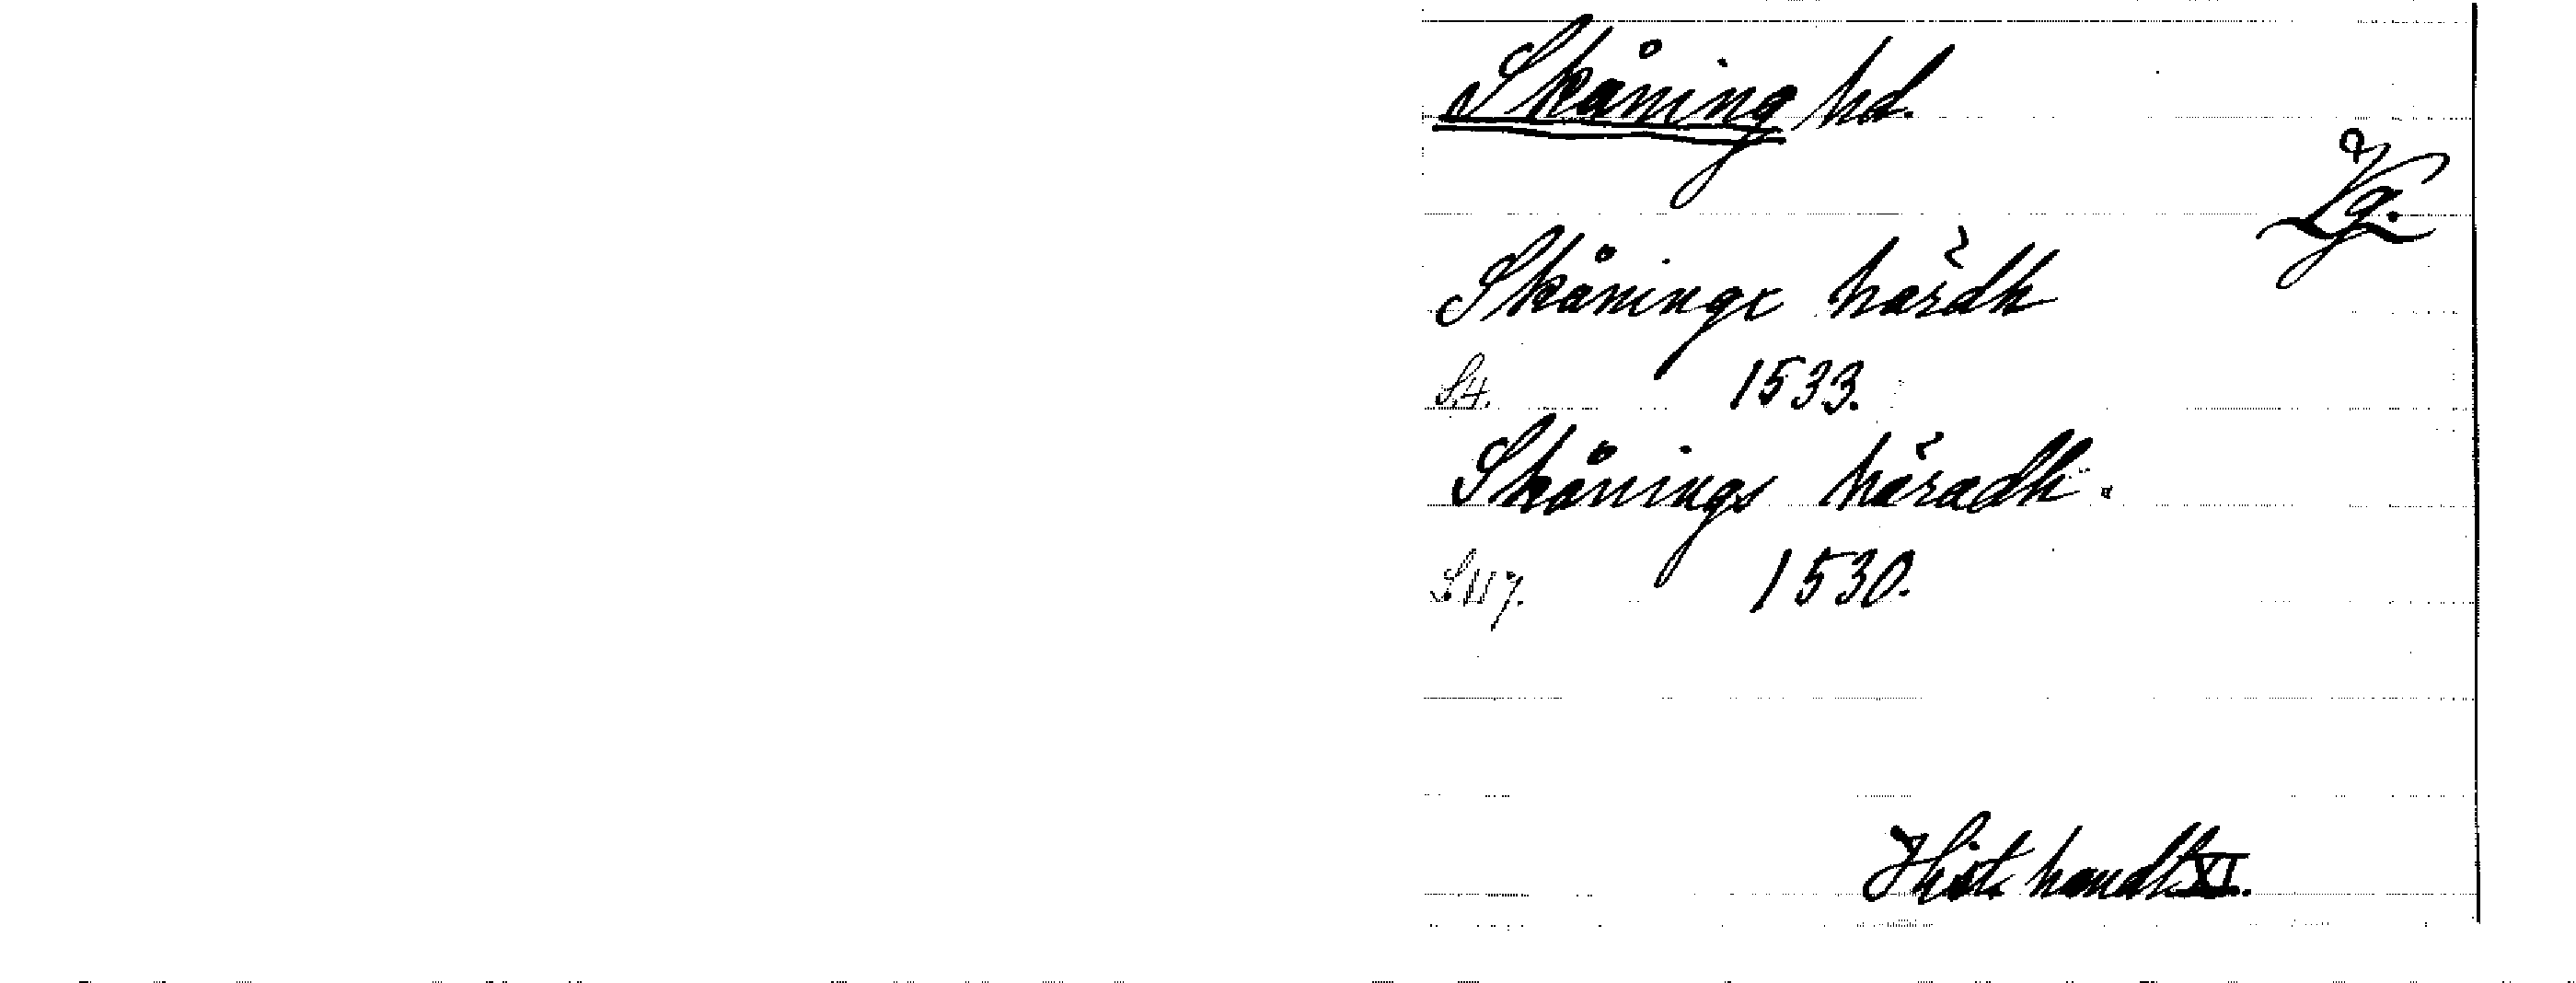 Skåning hd.
Vg.
Skåninge härdh
S.4. 1533.
Skånings häradh.
S.117. 1530.
Hist. handl. XI.